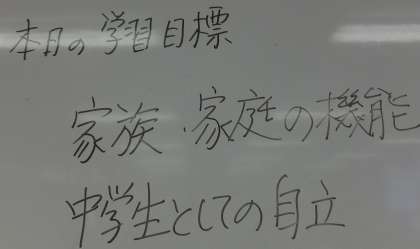 本日の学習目標
家族・家庭の機能
中学生としての自立